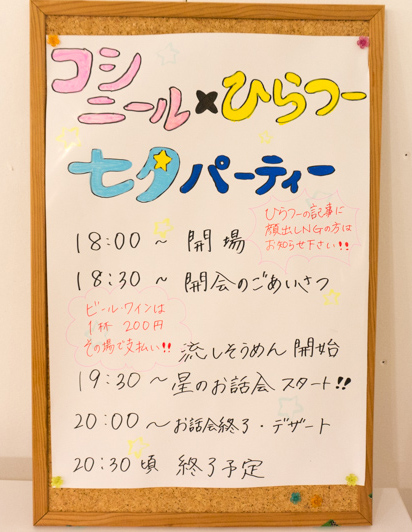 コシ
ニール×ひらつー
七夕パーティー
ひらつーの記事に
顔出しNGの方は
お知らせ下さい!!
18:00 ~ 開場
18:30 ~ 開会のごあいさつ
ビール・ワインは
1杯 200円
その場で支払い!!
流しそうめん 開始
19:30 ~ 星のお話会 スタート!!
20:00 ~ お話会終了・デザート
20:30 頃 終了予定